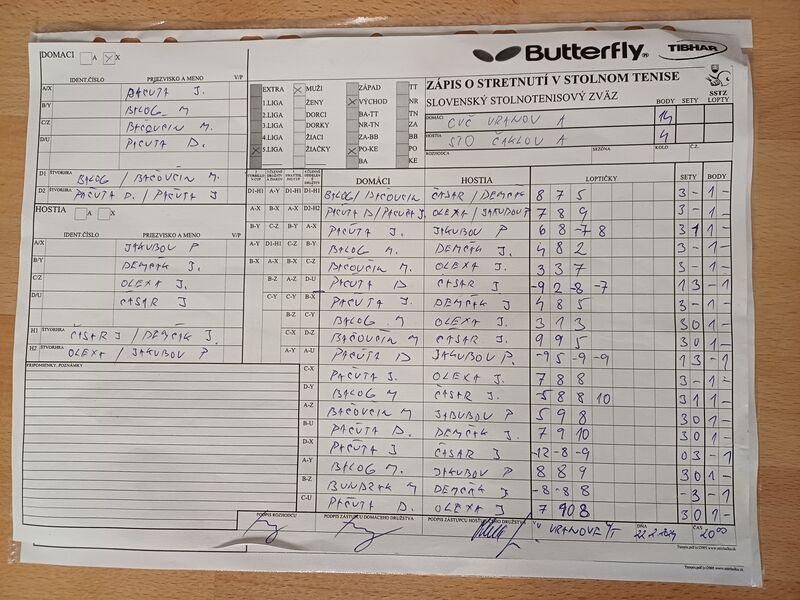 Butterfly
TIBHAR
DOMACI A X
IDENT.ČÍSLO PRIEZVISKO A MENO V/P
A/X PAČUTA J.
B/Y BALOG M
C/Z BAČOVČIN M.
D/U PAČUTA D.
D1 ŠTVORHRA BALOG / BAČOVČIN M.
D2 ŠTVORHRA PAČUTA D. / PAČUTA J
HOSTIA A X
IDENT.ČÍSLO PRIEZVISKO A MENO V/P
A/X JAKUBOV P
B/Y DEMČÁK J.
C/Z OLEXA J
D/U ČASAR J
H1 ŠTVORHRA ČASAR J / DEMČÁK J.
H2 ŠTVORHRA OLEXA / JAKUBOV P
PRIPOMIENKY, POZNÁMKY
EXTRA X MUŽI ZÁPAD TT
1.LIGA ŽENY X VÝCHOD NR
2.LIGA DORCI BA-TT TN
3.LIGA DORKY NR-TN ZA
4.LIGA ŽIACI ZA-BB BB
X 5.LIGA ŽIAČKY X PO-KE PO
BA KE
ZÁPIS O STRETNUTÍ V STOLNOM TENISE
SLOVENSKÝ STOLNOTENISOVÝ ZVÄZ
SSTZ
BODY SETY LOPTY
DOMÁCI CVČ VRANOV A 14
HOSTIA STO ČAKLOV A 4
ROZHODCA SEZÓNA KOLO Č.Z.
DOMÁCI HOSTIA LOPTIČKY SETY BODY
D1-H1 A-Y D1-H1 D1-H1 BALOG / BAČOVČIN ČASAR / DEMČÁK 8 7 5 3 - 1 -
A-X B-X A-X D2-H2 PAČUTA D / PAČUTA J. OLEXA / JAKUBOV P 7 8 9 3 - 1 -
B-Y C-Z B-Y A-X PAČUTA J. JAKUBOV P 6 8 -7 8 3 1 1 -
A-Y D1-H1 C-Z B-Y BALOG M. DEMČÁK J. 4 8 2 3 - 1 -
B-X A-X B-X C-Z BAČOVČIN M. OLEXA J. 3 3 7 3 - 1 -
B-Z A-Z D-U PAČUTA D ČASAR J -9 2 -8 -7 1 3 - 1
C-Y C-Y B-X PAČUTA J. DEMČÁK J 4 8 5 3 - 1 -
B-Z C-Y BALOG M OLEXA J. 3 1 3 3 0 1 -
C-X D-Z BAČOVČIN M ČASAR J. 9 9 5 3 0 1 -
A-Y A-U PAČUTA D JAKUBOV P. -9 5 -9 -9 1 3 - 1
C-X PAČUTA J. OLEXA J. 7 8 8 3 - 1 -
D-Y BALOG M ČASAR J. -5 8 8 10 3 1 1 -
A-Z BAČOVČIN M JABUBOV P 5 9 8 3 0 1 -
B-U PAČUTA D. DEMČÁK J 7 9 10 3 0 1 -
D-X PAČUTA J ČASAR J -12 -8 -9 0 3 - 1
A-Y BALOG M. JAKUBOV P 8 8 9 3 0 1 -
B-Z BUNDZAK M DEMČÁK J -8 -8 8 - 3 - 1
C-U PAČUTA D. OLEXA J 7 9 0 8 3 0 1 -
PODPIS ROZHODCU PODPIS ZÁSTUPCU DOMÁCEHO DRUŽSTVA PODPIS ZÁSTUPCU HOSŤUJÚCEHO DRUŽSTVA V VRANOVE n/T DŇA ČAS 20 00